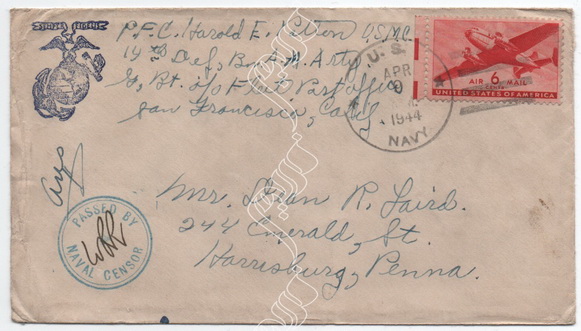 SEMPER FIDELIS
P.F.C. Harold E. U.S.M.C.
14th Def. Bn. A.A. Arty
G, Bt. c/o Fleet Post office
San Francisco, Calif
U. S.
APR
9
A.M.
1944
NAVY
AIR 6 MAIL
CENTS
UNITED STATES OF AMERICA
PASSED BY
NAVAL CENSOR
Mr. Dean R. Laird.
244 Emerald, St.
Harrisburg, Penna.